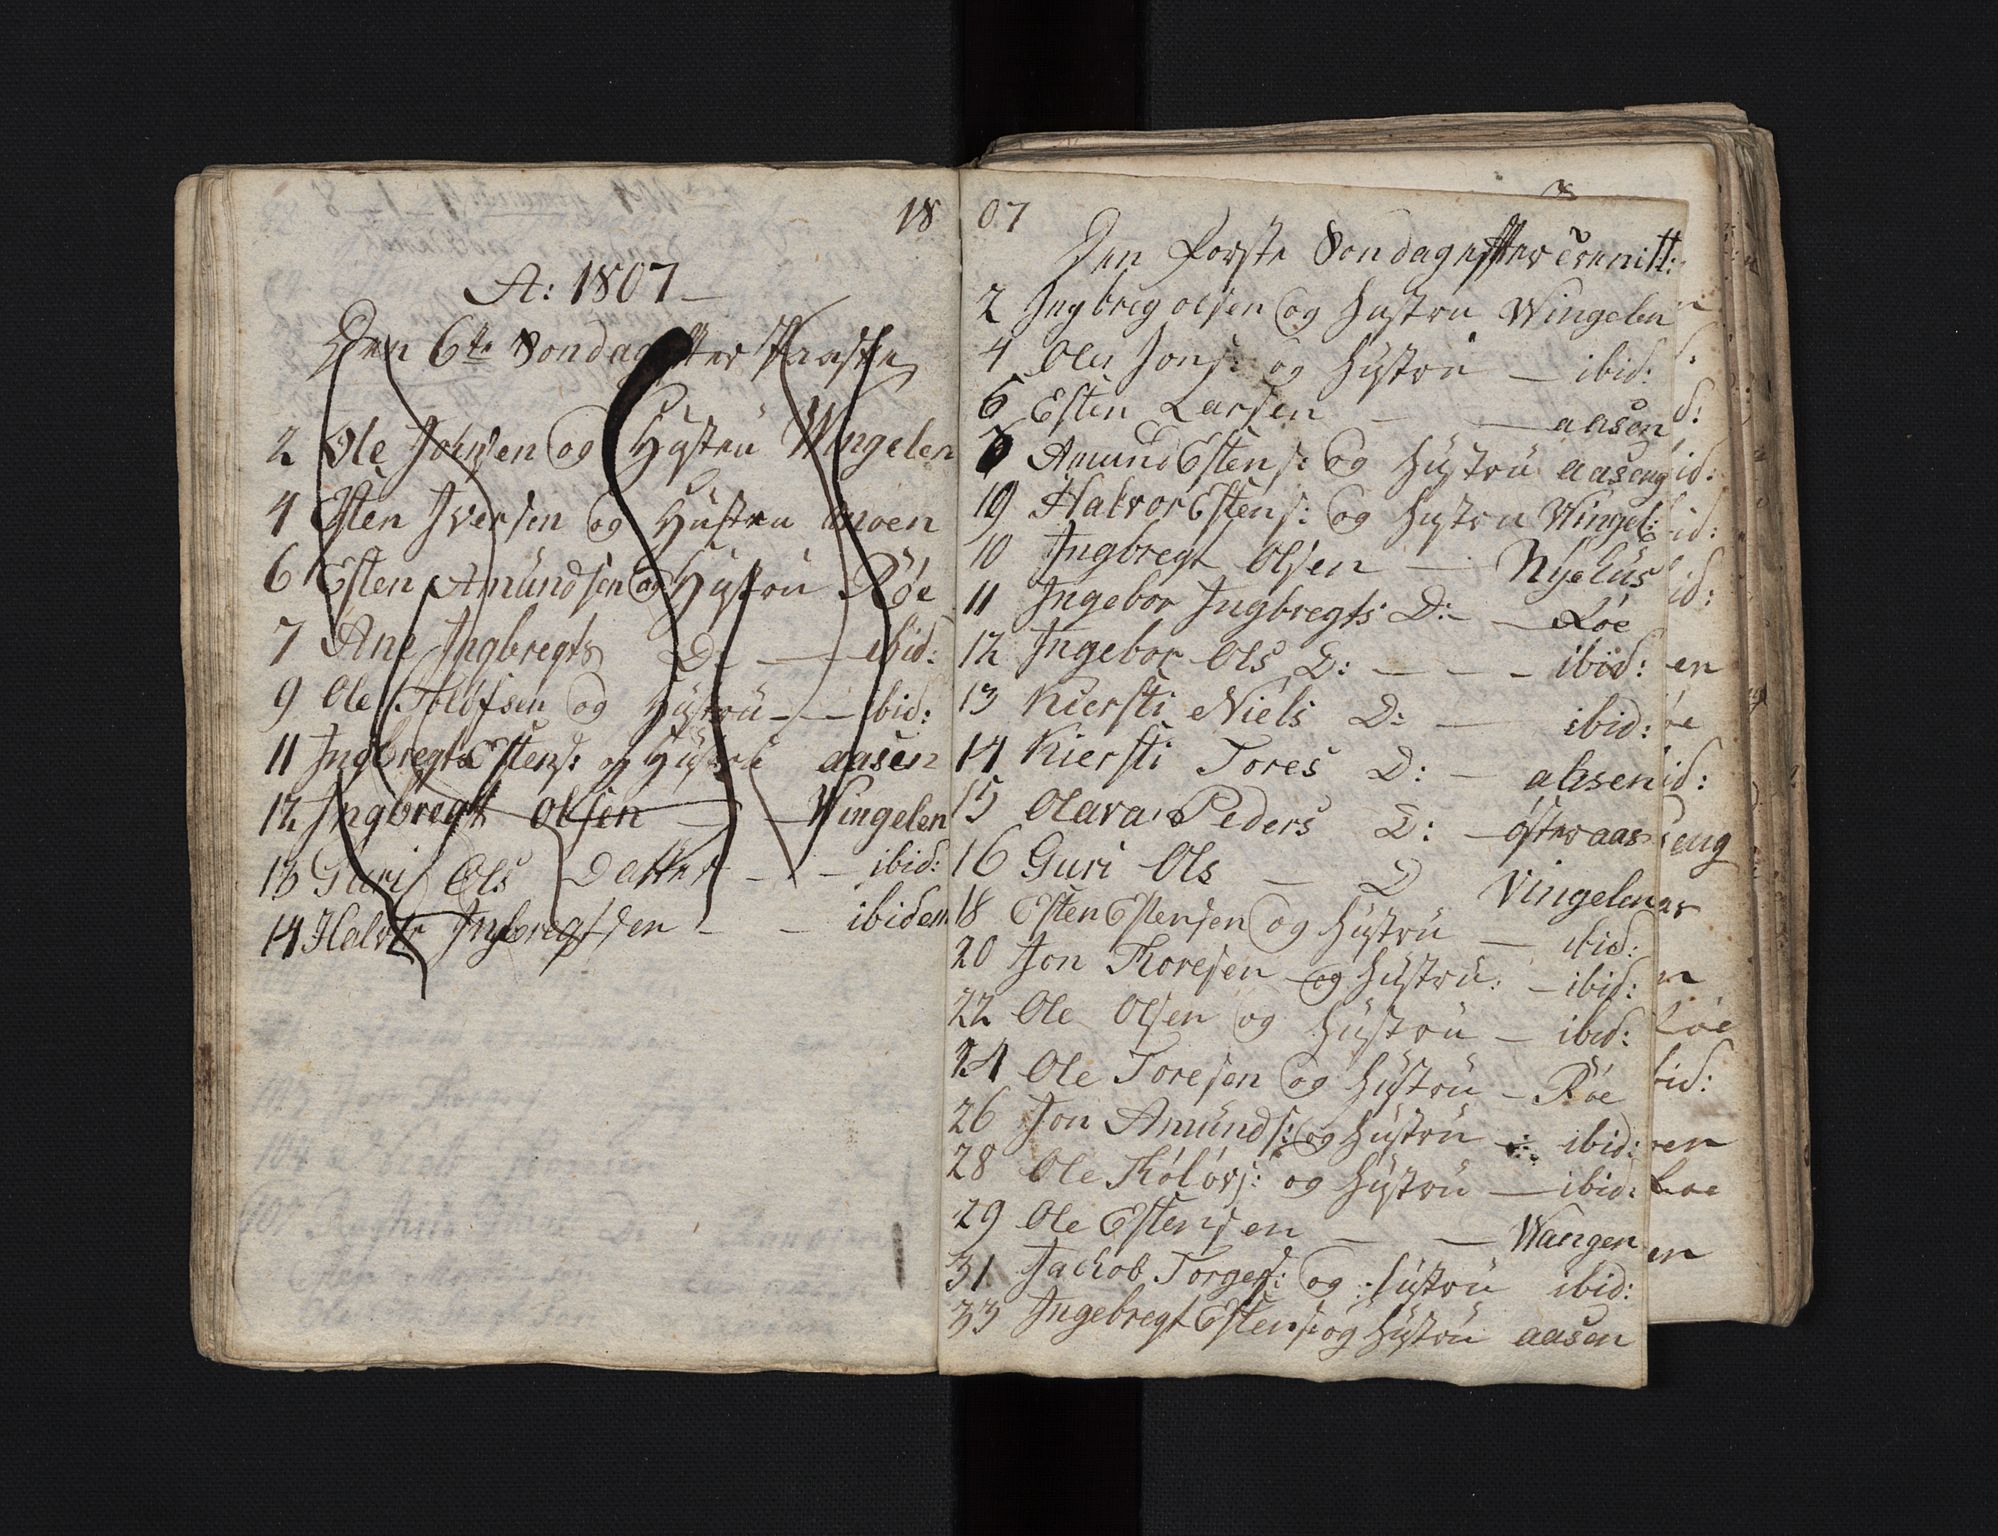 18
A: 1807
Den 6te Sondag efter Paaske
2 Ole Johnsen og Hystrü Wingelen
4 Esten Iversen og Hüstru moen
6 Esten Amündsen og Hystrü Röe
7 Ane Ingbregts D: ibid:
9 Ole Tolófsen og Hystrü ibid:
11 Ingbregt Estens: og Hystrü aasen
12 Ingbregt Olsen Wingelen
13 Guri Ols Datter ibid:
14 Halvor Ingbregtsen ibidem
07
Den Forste Sondag effter Trenitt:
2 Ingbreg olsen og Hustru Wingelen
4 Ole Jons: og Hystrü ibid:
6 Esten Larsen aasen
8 Amund Estens: og Hystrü aaseng
10 Halvor Estens: og Hystru Wingel:
10 Ingbregt Olsen Nyehüs
11 Ingebor Ingbregts D: Röe
12 Ingebor Ols D: ibid:
13 Kiersti Niels D: ibid:
14 Kiersti Tores D: aasen
15 Olava Peders D: öster aas
16 Guri Ols D Vingelen
18 Esten Estensen og Hystrü ibid:
20 Jon Thoresen og Hystrü: ibid:
22 Ole Olsen og Hüstrü ibid:
24 Ole Toresen og Hystrü Röe
26 Jon Amünds: og Hüstrü ibid:
28 Ole Tólóvs: og Hystrü ibid:
29 Ole Estensen Wangen
31 Jachob Torges: og Hustrü ibid:
33 Ingebregt Estens: og Hystrü aasen